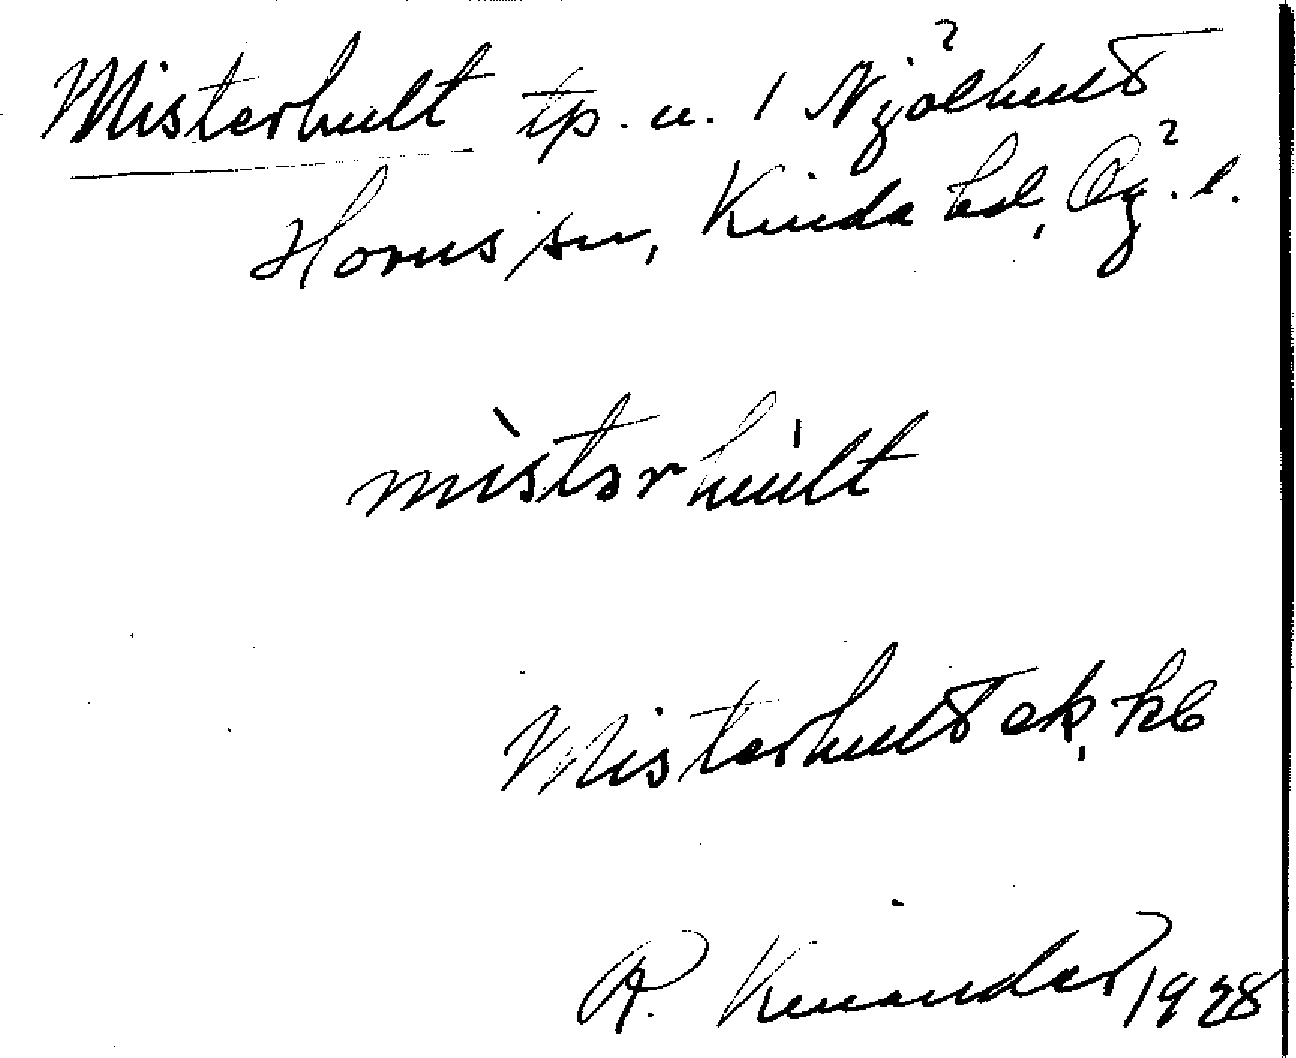 Misterhult tp. u. 1 Njölhult
Horns sn, Kinda hd, Ög. l.
mìstərhúlt
Misterhult ek, kb
R. Kinander 1928